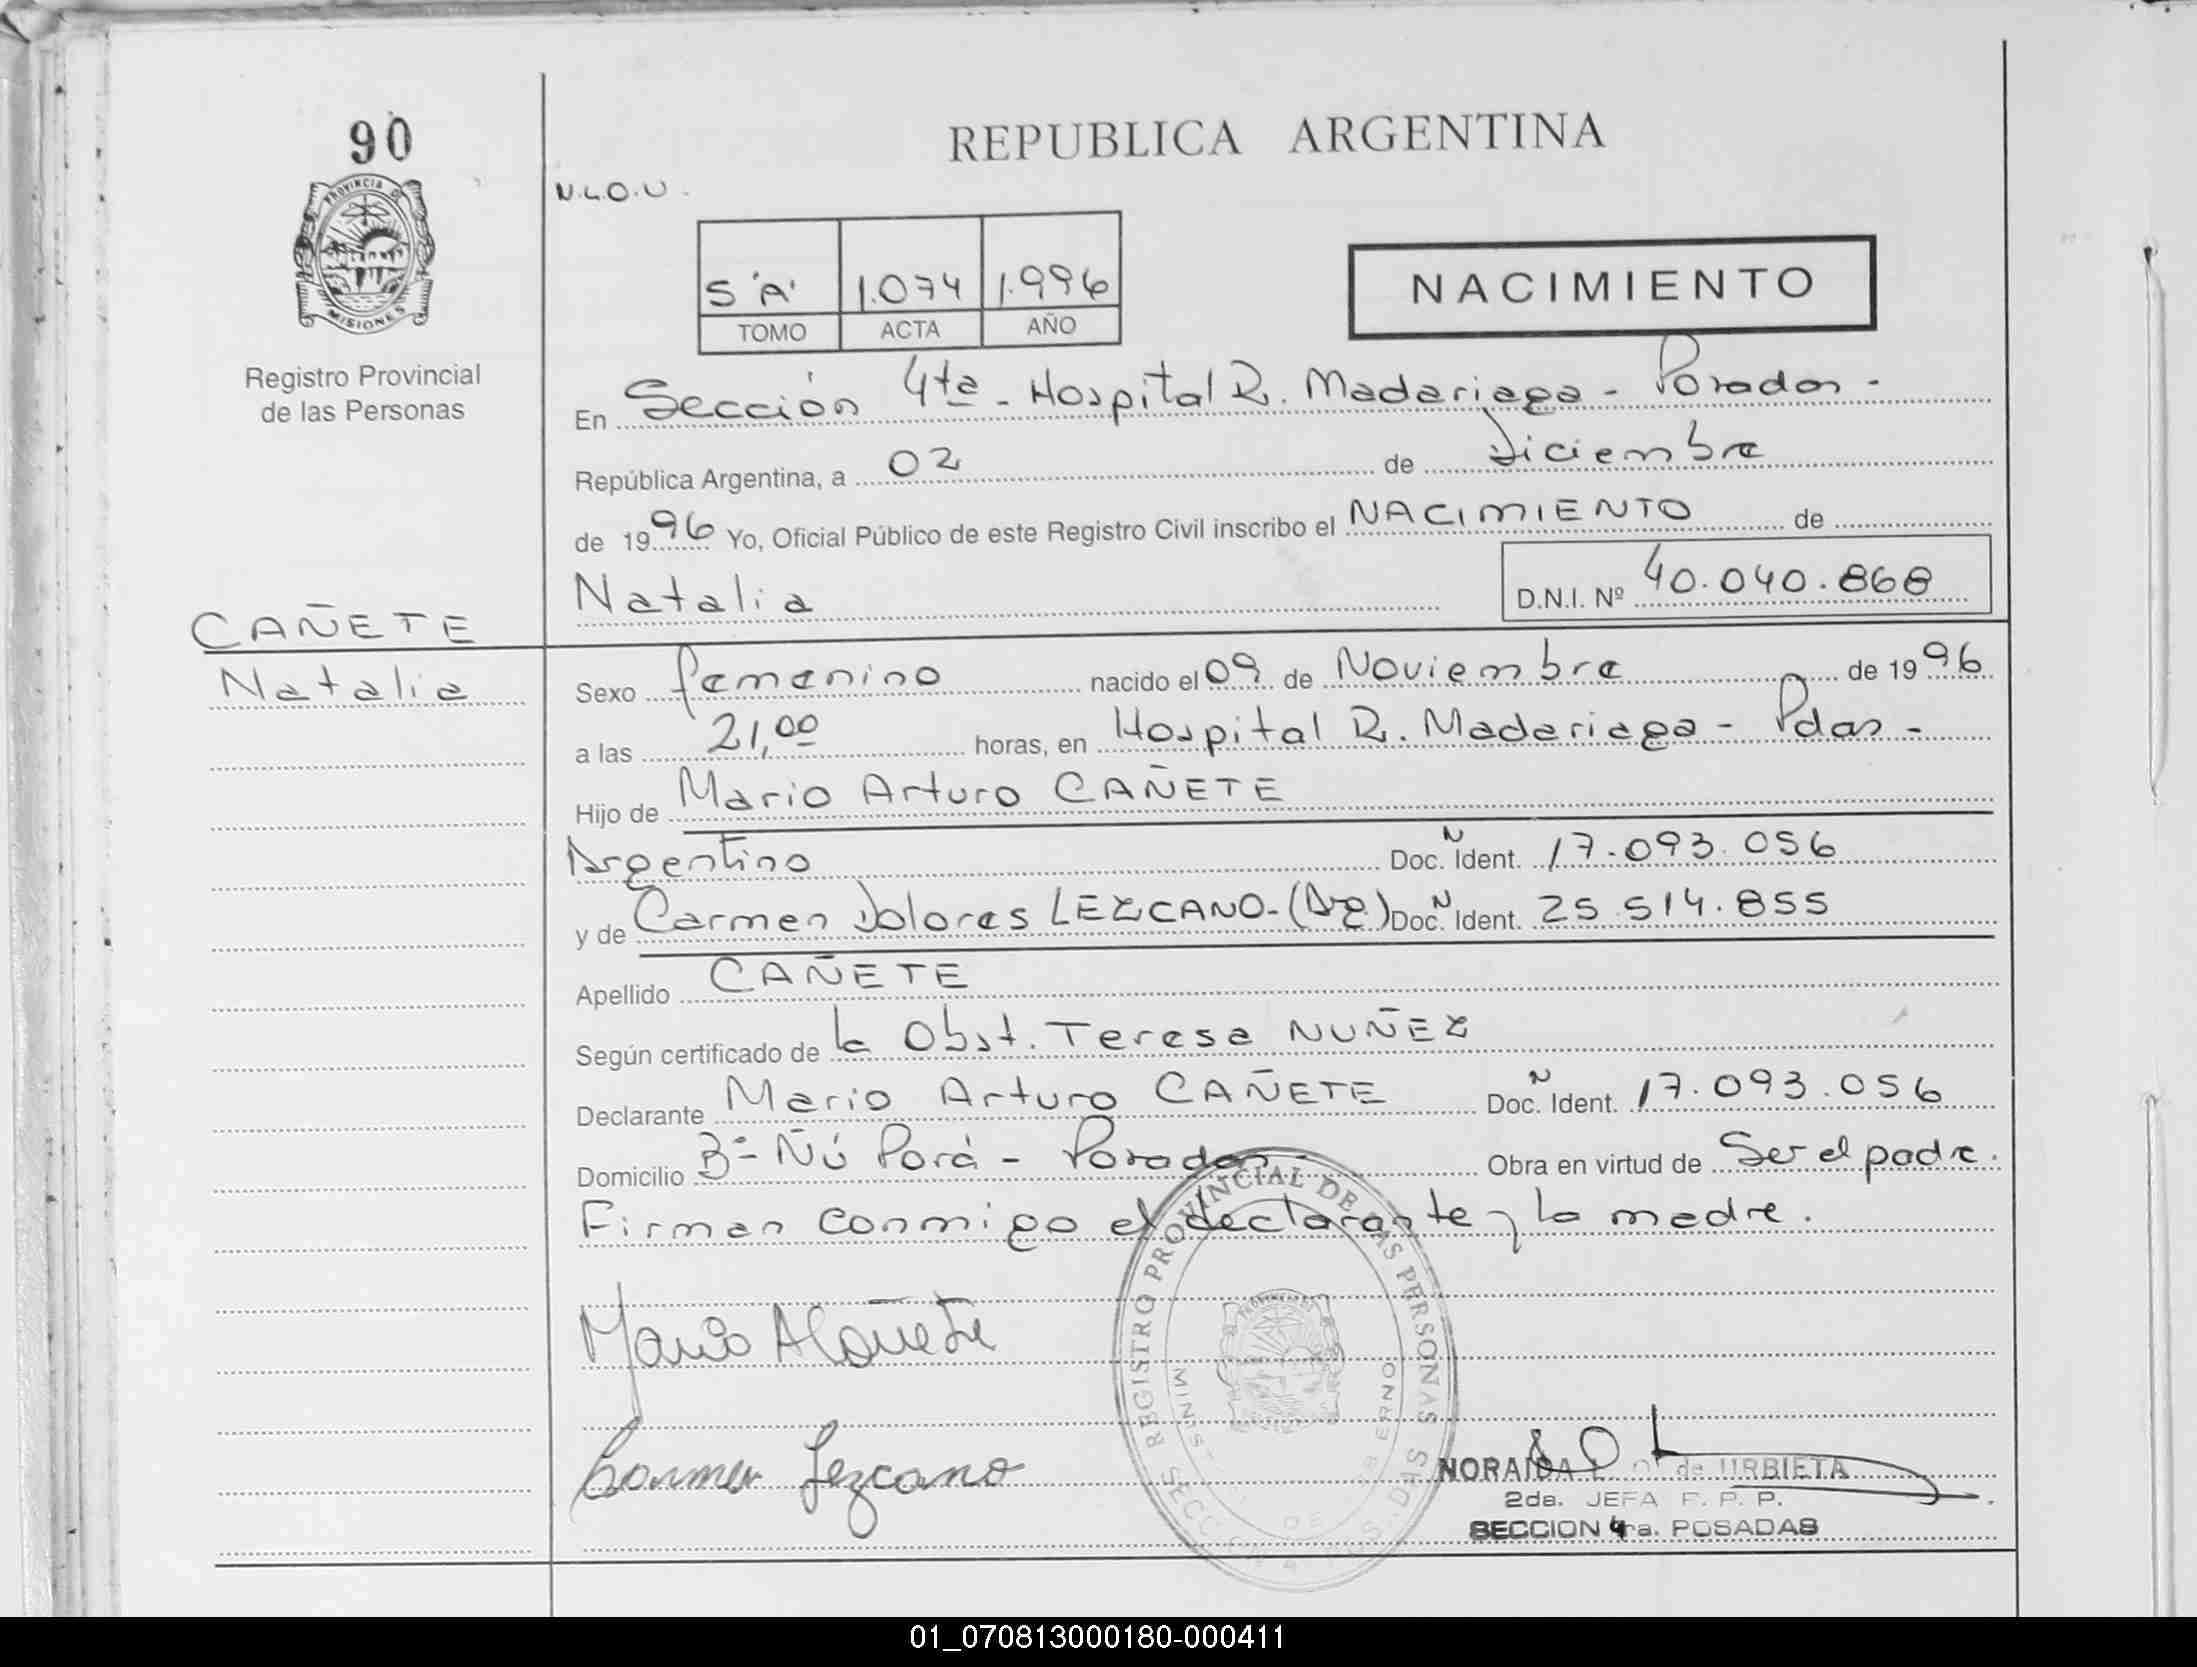 90
PROVINCIA DE
MISIONES
Registro Provincial
de las Personas
REPUBLICA ARGENTINA
N.L.O.U.
5 "A" 1.074 1.996
TOMO ACTA AÑO
NACIMIENTO
En Sección 4ta - Hospital R. Madariaga - Posadas -
República Argentina, a 02 de Diciembre
de 1996 Yo, Oficial Público de este Registro Civil inscribo el NACIMIENTO de
Natalia D.N.I. Nº 40.040.868
CAÑETE
Natalia
Sexo femenino nacido el 09 de Noviembre de 1996
a las 21,00 horas, en Hospital R. Madariaga - Pdas -
Hijo de Mario Arturo CAÑETE
Argentino Doc. Ñ Ident. 17.093.056
y de Carmen Dolores LEZCANO - (Arg) Doc. Ñ Ident. 25.514.855
Apellido CAÑETE
Según certificado de la Obst. Teresa NUÑEZ
Declarante Mario Arturo CAÑETE Doc. Ñ Ident. 17.093.056
Domicilio Bº Ñú Porá - Posadas - Obra en virtud de Ser el padre.
Firman conmigo el declarante y la madre.
Mario A Cañete
Carmen Lezcano
REGISTRO PROVINCIAL DE LAS PERSONAS
POSADAS
SECCION 4
DE
NORAIDA L. O. de URBIETA
2da. JEFA F. P. P.
SECCION 4ra. POSADAS
01_070813000180-000411